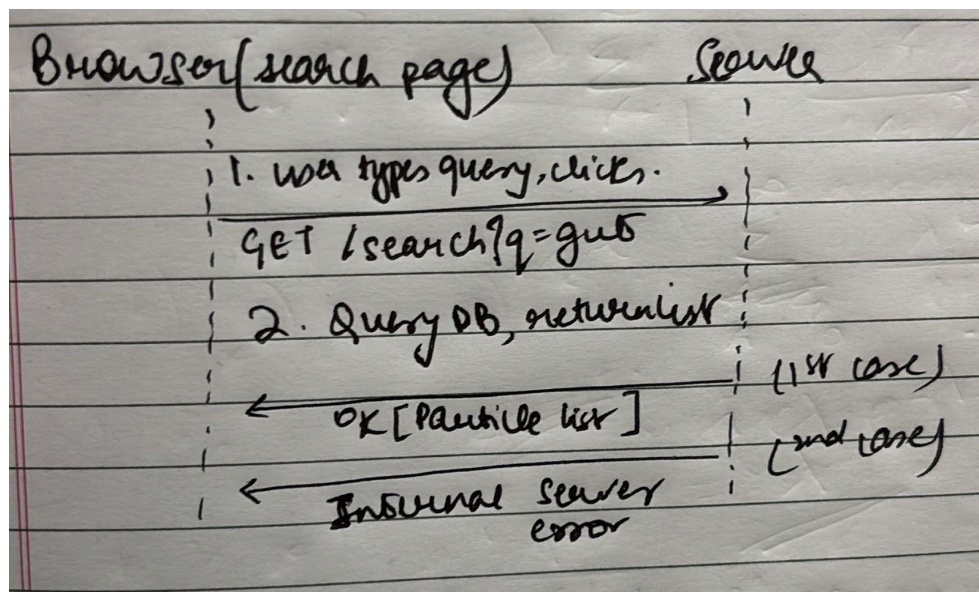 Browser(search page)
Server
1. user types query, clicks.
GET /search?q=gut
2. Query DB, return list
(1st case)
OK [Particle list]
(2nd case)
Internal server
error